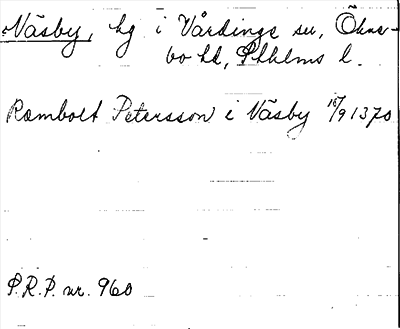 Näsby, hg i Vårdinge sn, Ökne-
bo hd, Sthlms l.
Rambolt Petersson i Näsby 16/9 1370
P.R.P. nr. 960